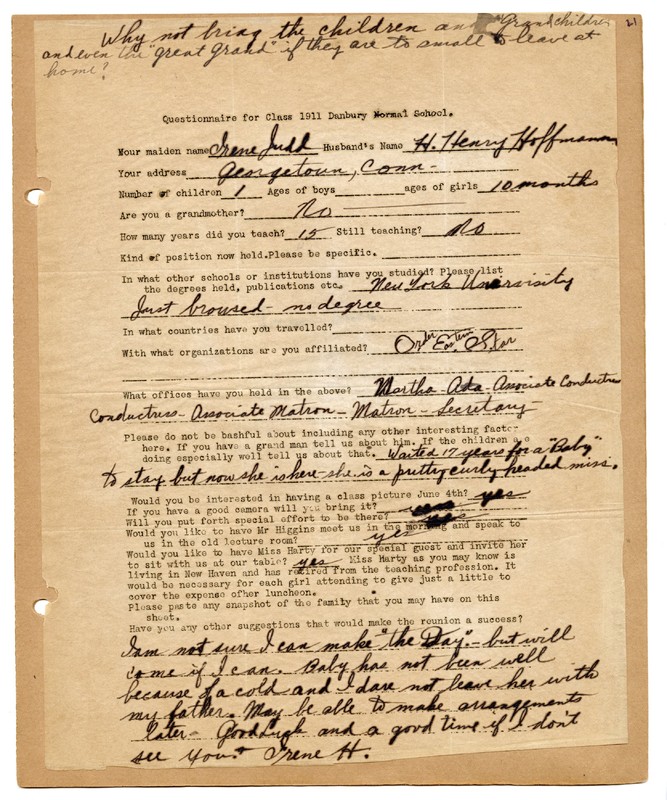 Why not bring the children and "Grandchildren
21
and even the "great Grand" if they are to small to leave at
home?
Questionnaire for Class 1911 Danbury Normal School.
Your maiden name Irene Judd Husband's Name H. Henry Hoffmann
Your address Georgetown, Conn-
Number of children 1 Ages of boys ages of girls 10 months
Are you a grandmother? No
How many years did you teach? 15 Still teaching? No
Kind of position now held.Please be specific.
In what other schools or institutions have you studied? Please list
the degrees held, publications etc. New York Unversisity
Just broused - no degree
In what countries have you travelled?
With what organizations are you affiliated? Order Eastern Star
What offices have you held in the above? Martha - Ada - Associate Conductress
Conductress - Associate Matron - Matron - Secretary -
Please do not be bashful about including any other interesting factor
here. If you have a grand man tell us about him. If the children are
doing especially well tell us about that. Waited 17 years for a "Baby"
to stay but now she is here - she is a pretty curly headed miss.
Would you be interested in having a class picture June 4th? yes
If you have a good camera will you bring it?
Will you put forth special effort to be there? yes
Would you like to have Mr Higgins meet us in the morning and speak to
us in the old lecture room? yes
Would you like to have Miss Harty for our special guest and invite her
to sit with us at our table? yes Miss Harty as you may know is
living in New Haven and has retired from the teaching profession. It
would be necessary for each girl attending to give just a little to
cover the expense ofher luncheon.
Please paste any snapshot of the family that you may have on this
sheet.
Have you any other suggestions that would make the reunion a success?
I am not sure I can make "the Day" - but will
come if I can. Baby has not been well
because of a cold and I dare not leave her with
my father. May be able to make arrangements
later - Good Luck and a good time if I don't
see you. Irene H.